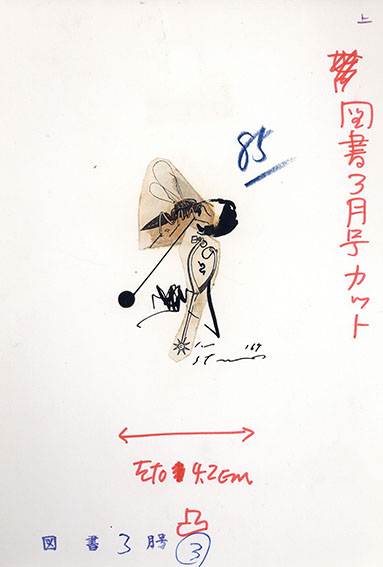 上
図書3月号カット
85
'69
左右 4.2cm
凸
図書3月号 3